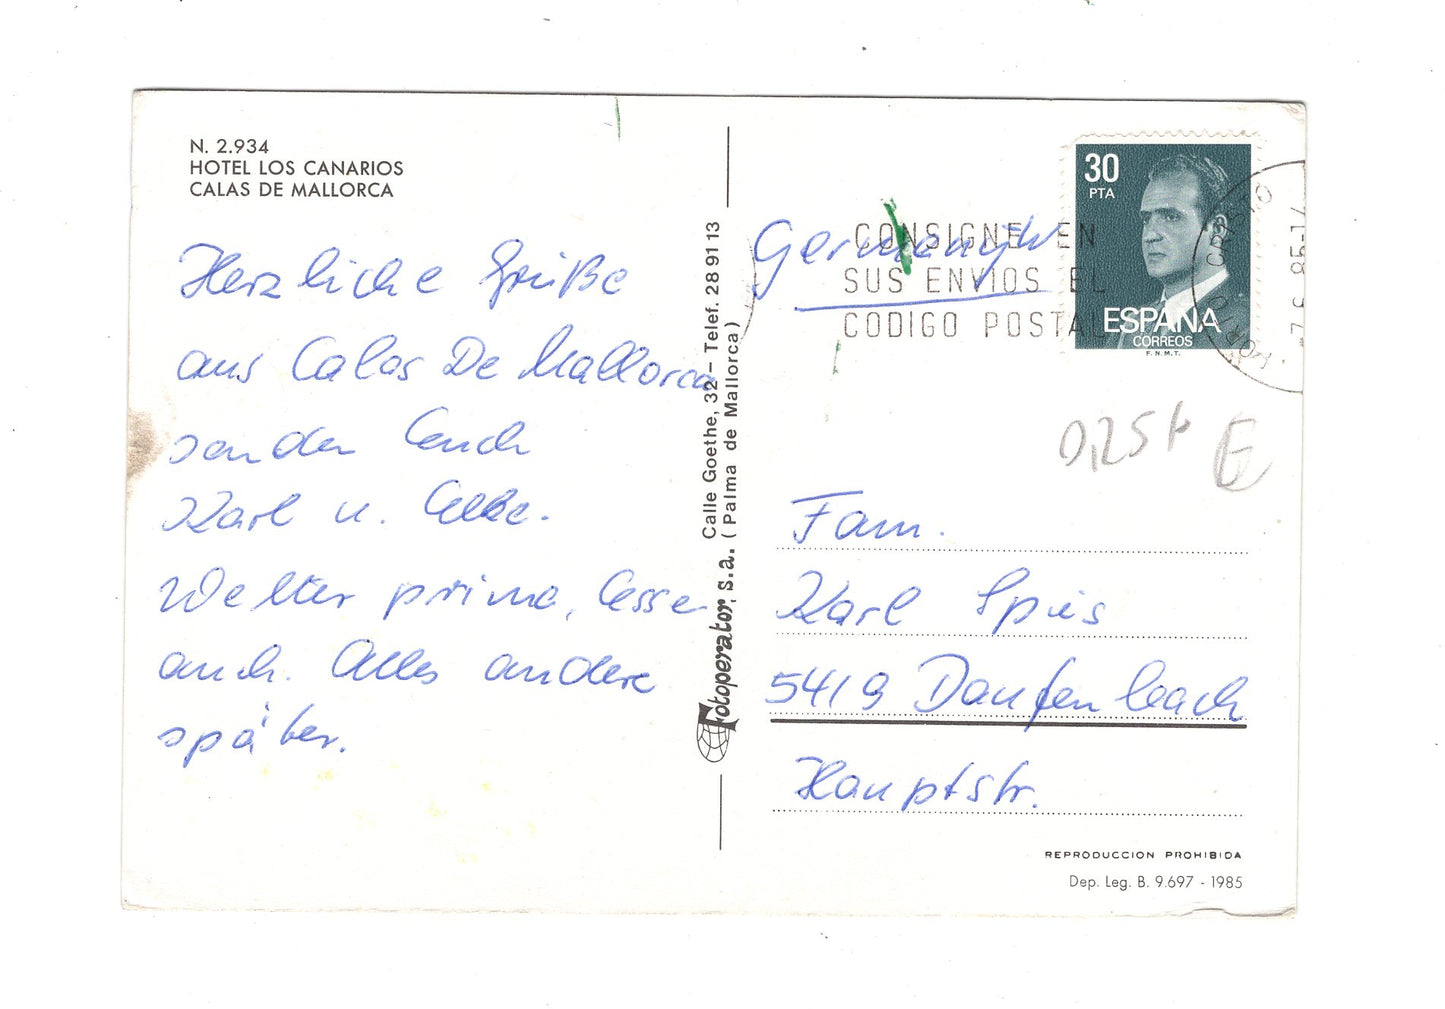 N. 2.934
HOTEL LOS CANARIOS
CALAS DE MALLORCA
Herzliche Grüße
aus Calas De Mallorca
senden Euch
Karl u. Elke.
Wetter prima, Essen
auch. Alles andere
später.
Fotoperator, s.a. Calle Goethe, 32 – Telef. 28 91 13
(Palma de Mallorca)
Germany W
CONSIGNE EN
SUS ENVIOS EL
CODIGO POSTAL
30
PTA
ESPAÑA
CORREOS
F.N.M.T.
PORTO CRISTO
0,25
Fam.
Karl Spies
5419 Daufenbach
Hauptstr.
REPRODUCCION PROHIBIDA
Dep. Leg. B. 9.697 - 1985